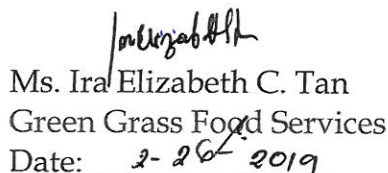 Ms. Ira Elizabeth C. Tan
Green Grass Food Services
Date: 2-26-2019